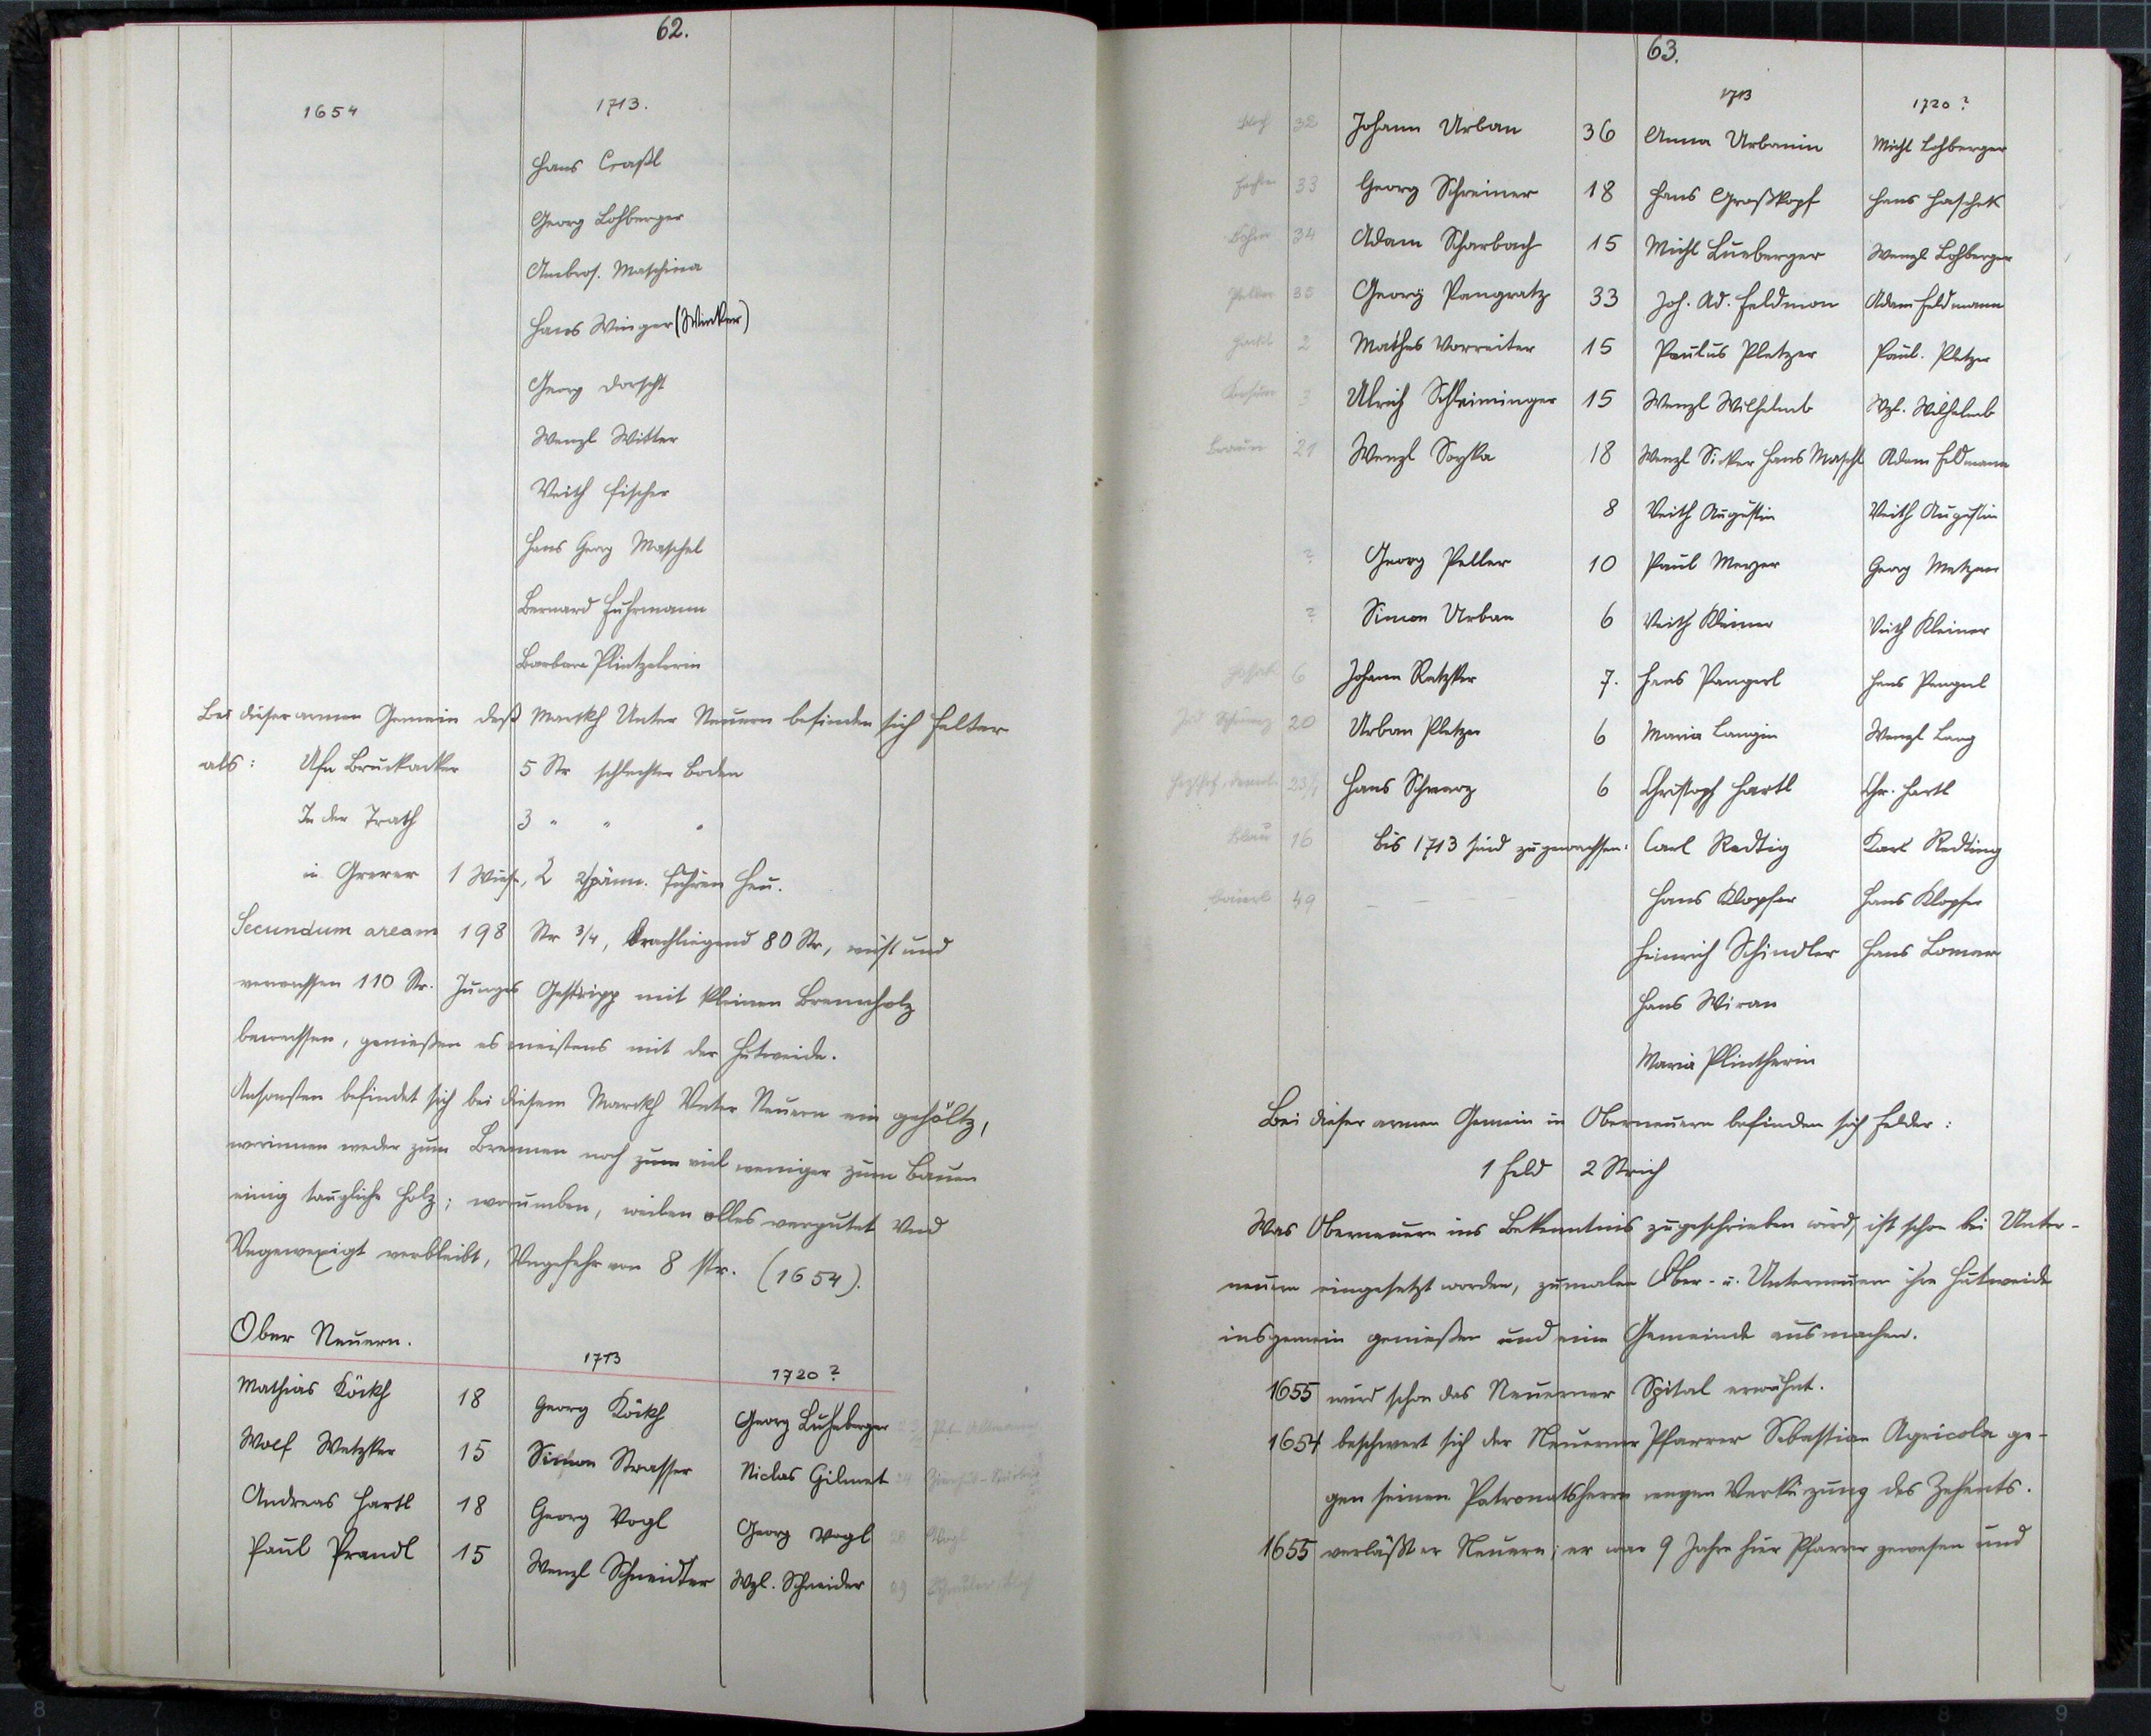 62.
1654 1713.
Hans Craßl
Georg Lohberger
Ambros. Maschina
Hans Winger (Winker)
Georg Dorscht
Wenzl Witter
Veith Fischer
Hans Georg Maschel
Bernard Fuhrmann
Barbara Plintzelerin
Bei dieser armen Gemein deß Markh Unter Neuern befinden sich Felter
als: Ufn Bruckacker 5 Str schlechter Boden
In der Trath 3 " " "
in Grerer 1 Wiese, 2 2spänn. Fuhren Heu.
Secundum aream 198 Str 3/4, brachliegend 80 Str, wüst und
verwachsen 110 Str. Junges Gestripp mit kleinen Brennholz
bewachsen, genießen es meistens mit der Hutweide.
Ansonsten befindet sich bei diesem Markh Unter Neuern ein gehöltz,
worinnen weder zum Brennen noch zum viel weniger zum Bauen
einig taugliche Holz; worumben, weilen alles verputet Und
verbleibt, Ungefehr von 8 str. (1654).
Ober Neuern.
1713 1720?
Mathias Köckh 18 Georg Köckh Georg Luheberger
Wolf Watzker 15 Simon Strasser Niclas Gilmet 24
Andreas Hartl 18 Georg Vogl Georg Vogl 28 Vogl
Paul Prandl 15 Wenzl Schneidter Wzl. Schneider 29
63.
1713 1720?
32 Johann Urban 36 Anna Urbanin Michl Lohberger
33 Georg Schreiner 18 Hans Großkopf Hans Haschek
34 Adam Scharbach 15 Michl Lueberger Wenzl Lohberger
35 Georg Pangratz 33 Joh. Ad. Feldmon Adam Feldmann
2 Mathes Vorreiter 15 Paulus Pletzer Paul. Pletzer
3 Ulrich Schleiminger 15 Wenzl Wilhelmb Wzl. Wilhelmb
Braun 21 Wenzl Soyka 18 Wenzl Sicker Hans Maschl Adam Feldmann
8 Veith Augustin Veith Augustin
? Georg Peller 10 Paul Mezer Georg Metzen
? Simon Urban 6 Veith Kleiner Veith Kleiner
6 Johann Ratzker 7. Hans Pangerl Hans Pangerl
20 Urban Pletzer 6 Maria Langin Wenzl Lang
23/1 Hans Schwarz 6 Christoph Hartl Chr. Hartl
16 Bis 1713 sind zugewachsen: Carl Redtig Karl Redting
49 – – – – Hans Klopfer Hans Klopfer
Heinrich Schindler Hans Lomer
Hans Wiran
Maria Plintherin
Bei dieser armen Gemein in Oberneuern befinden sich Felder:
1 Feld 2 Strich
Was Oberneuern ins Bekenntnis zugeschrieben wird, ist schon bei Unter-
neuern eingesetzt worden, zumalen Ober- u. Unterneuern ihre Hutweide
insgemein genießen und eine Gemeinde ausmachen.
1655 wird schon das Neuerner Spital erwähnt.
1654 beschwert sich der Neuerner Pfarrer Sebastian Agricola ge-
gen seinen Patronatsherrn wegen Verkürzung des Zehents.
1655 verläßt er Neuern; er war 9 Jahre hier Pfarrer gewesen und